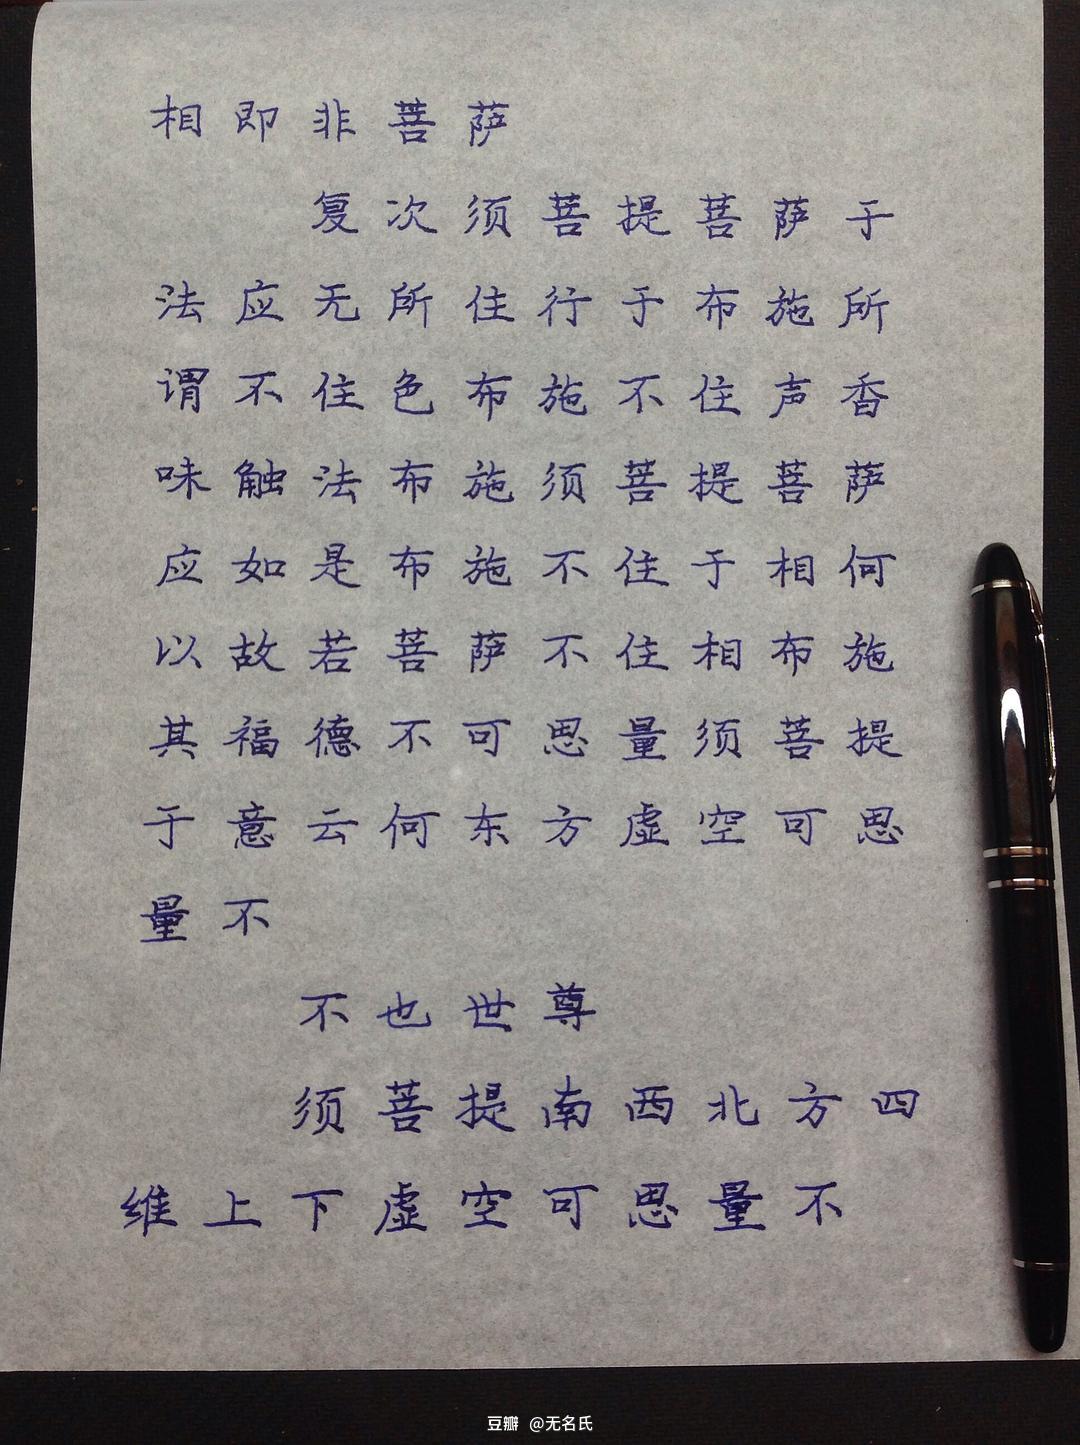 相即非菩萨
复次须菩提菩萨于
法应无所住行于布施所
谓不住色布施不住声香
味触法布施须菩提菩萨
应如是布施不住于相何
以故若菩萨不住相布施
其福德不可思量须菩提
于意云何东方虚空可思
量不
不也世尊
须菩提南西北方四
维上下虚空可思量不
豆瓣 @无名氏